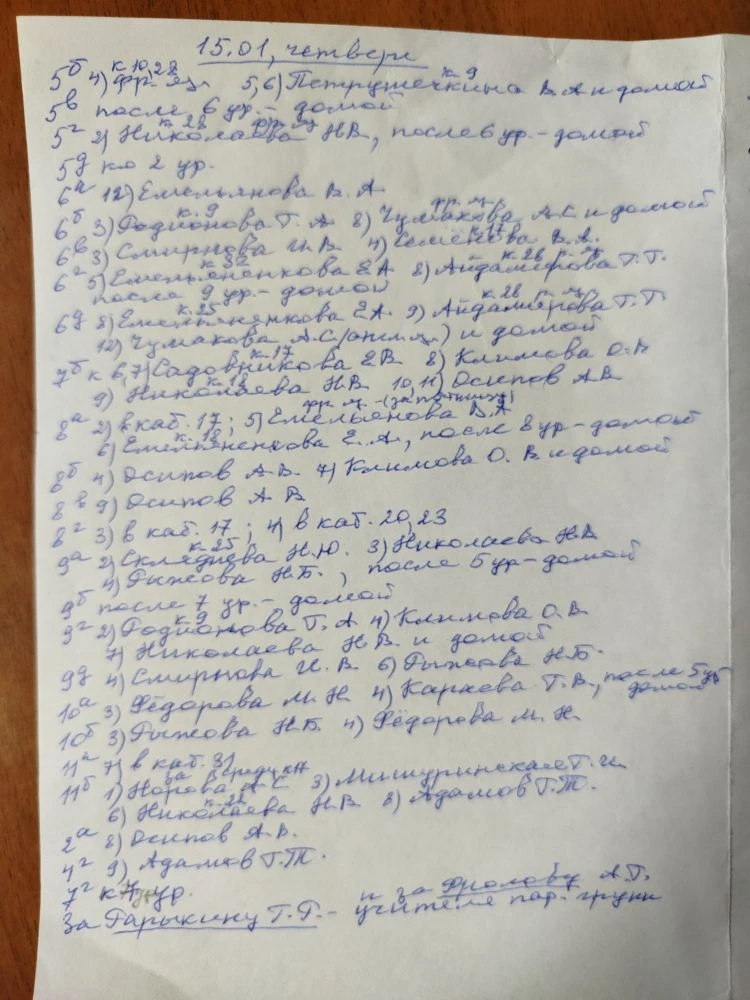 15.01, четверг
5б 4) к.10,28 фр. яз. 5,6) Петрушечкина к.9 В.А и домой
5в после 6 ур. - домой
5г 2) Николаева к.28 фр. яз Н.В., после 6 ур. - домой
5д ко 2 ур.
6а 12) Емельянова В. А
6б 3) Родионова к.9 Т. А 8) Чумакова фр. яз. А.С и домой
6в 3) Смирнова И.В. 4) Семёнова к.17 В.А.
6г 5) Емельяненкова к.32 Е.А. 8) Айдамирова к.28 Т.Т.
после 9 ур. - домой
6д 8) Емельяненкова к.25 Е.А. 9) Айдамирова к.28 Т.Т
12) Чумакова А.С. и домой
7б к 6,7) Садовникова к.17 Е.В. 8) Климова О.В
9) Николаева к.18 Н.В. 10,11) Осипов А.В.
8а 2) в каб. 17; 5) Емельянова фр. яз - (за пятницу) В.А
6) Емельяненкова к.18 Е.А., после 8 ур - домой
8б 4) Осипов А.В. 7) Климова О. В и домой
8в 9) Осипов А В
8г 3) в каб. 17; 4) в каб. 20,23
9а 2) к.25 Н.Ю. 3) Николаева Н.В
4) Рыжова Н.Б., после 5 ур - домой
9б после 7 ур. - домой
9г 2) Родионова к.9 Т. А 4) Климова О.В.
7) Николаева Н В. и домой
9д 4) Смирнова И. В. 6) Рыжова Н.Б.
10а 3) Фёдорова М. Н. 4) Караева Т.В., после 5 ур домой
10б 3) Рыжова Н.Б. 4) Фёдорова М. Н.
11а 7) в каб. 31
11б 1) Норова за А С 3) Мишуринская Т. И.
6) Николаева к.22 Н.В. 8) Адамов Т.Т.
2а 8) Осипов А.В.
4г 9) Адамов Т.Т.
7г к ур.
За Гарыкину Т.Г. - и за Фролову А.Г.
учителя пар. групп